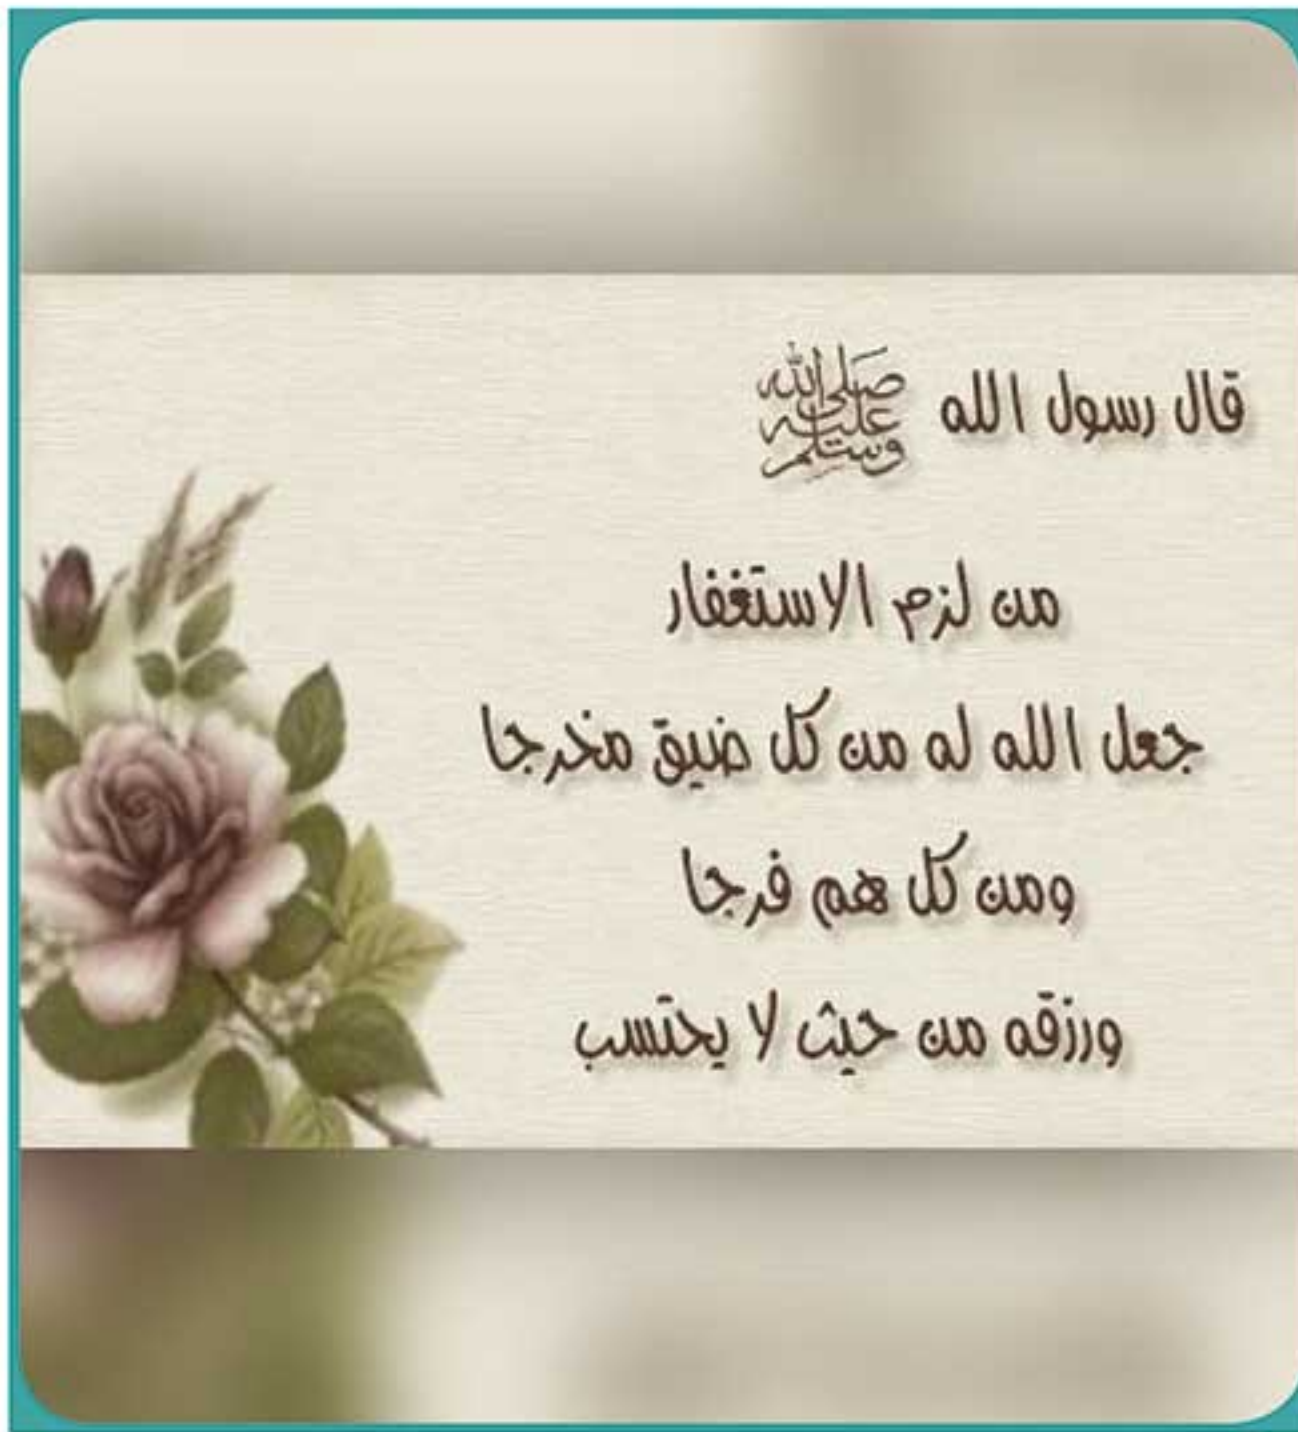 قال رسول الله صلى الله عليه وسلم
من لزم الاستغفار
جعل الله له من كل ضيق مخرجا
ومن كل هم فرجا
ورزقه من حيث لا يحتسب